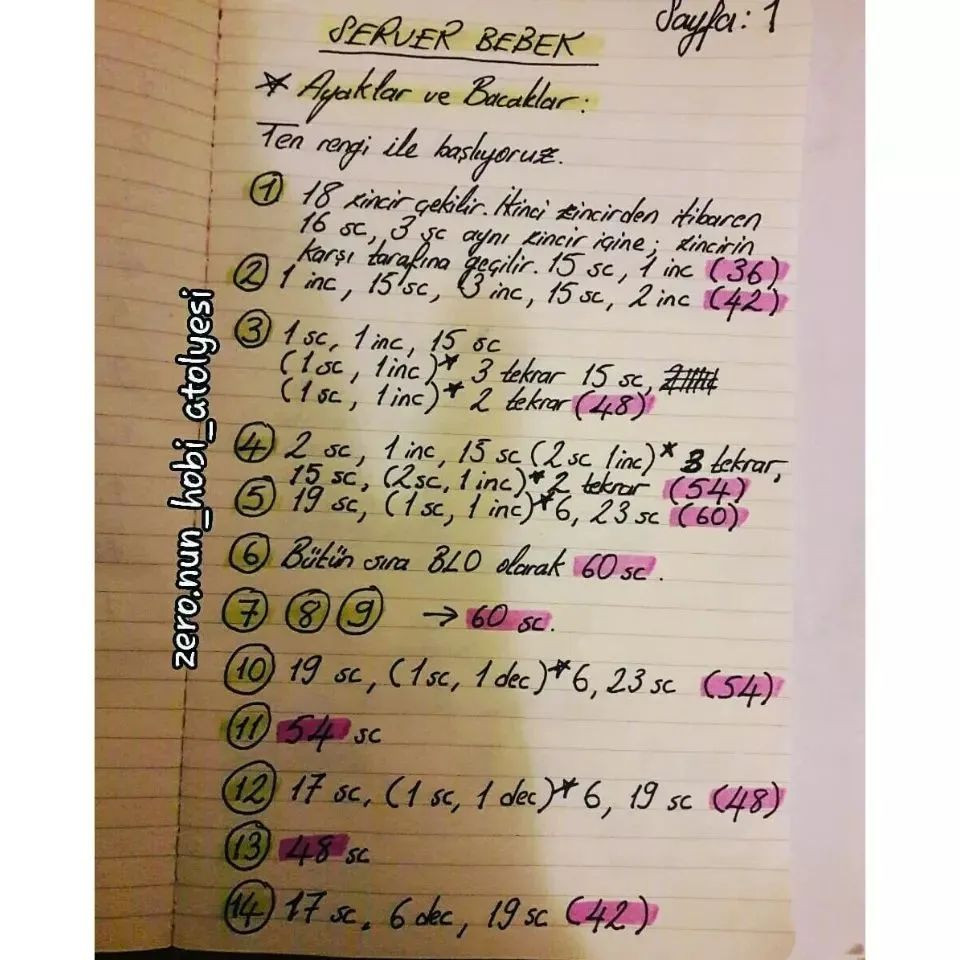 Sayfa: 1
SERVER BEBEK
* Ayaklar ve Bacaklar:
Ten rengi ile başlıyoruz.
① 18 zincir çekilir. İkinci zincirden itibaren
16 sc, 3 sc aynı zincir içine; zincirin
karşı tarafına geçilir. 15 sc, 1 inc (36)
② 1 inc, 15 sc, 3 inc, 15 sc, 2 inc (42)
③ 1 sc, 1 inc, 15 sc
(1 sc, 1 inc)* 3 tekrar 15 sc,
(1 sc, 1 inc)* 2 tekrar (48)
④ 2 sc, 1 inc, 15 sc (2 sc 1inc)* 3 tekrar,
15 sc, (2 sc, 1 inc)* 2 tekrar (54)
⑤ 19 sc, (1 sc, 1 inc)*6, 23 sc (60)
⑥ Bütün sıra BLO olarak 60 sc.
⑦ ⑧ ⑨ → 60 sc.
⑩ 19 sc, (1 sc, 1 dec)*6, 23 sc (54)
⑪ 54 sc
⑫ 17 sc, (1 sc, 1 dec)*6, 19 sc (48)
⑬ 48 sc
⑭ 17 sc, 6 dec, 19 sc (42)
zero.nun_hobi_atolyesi